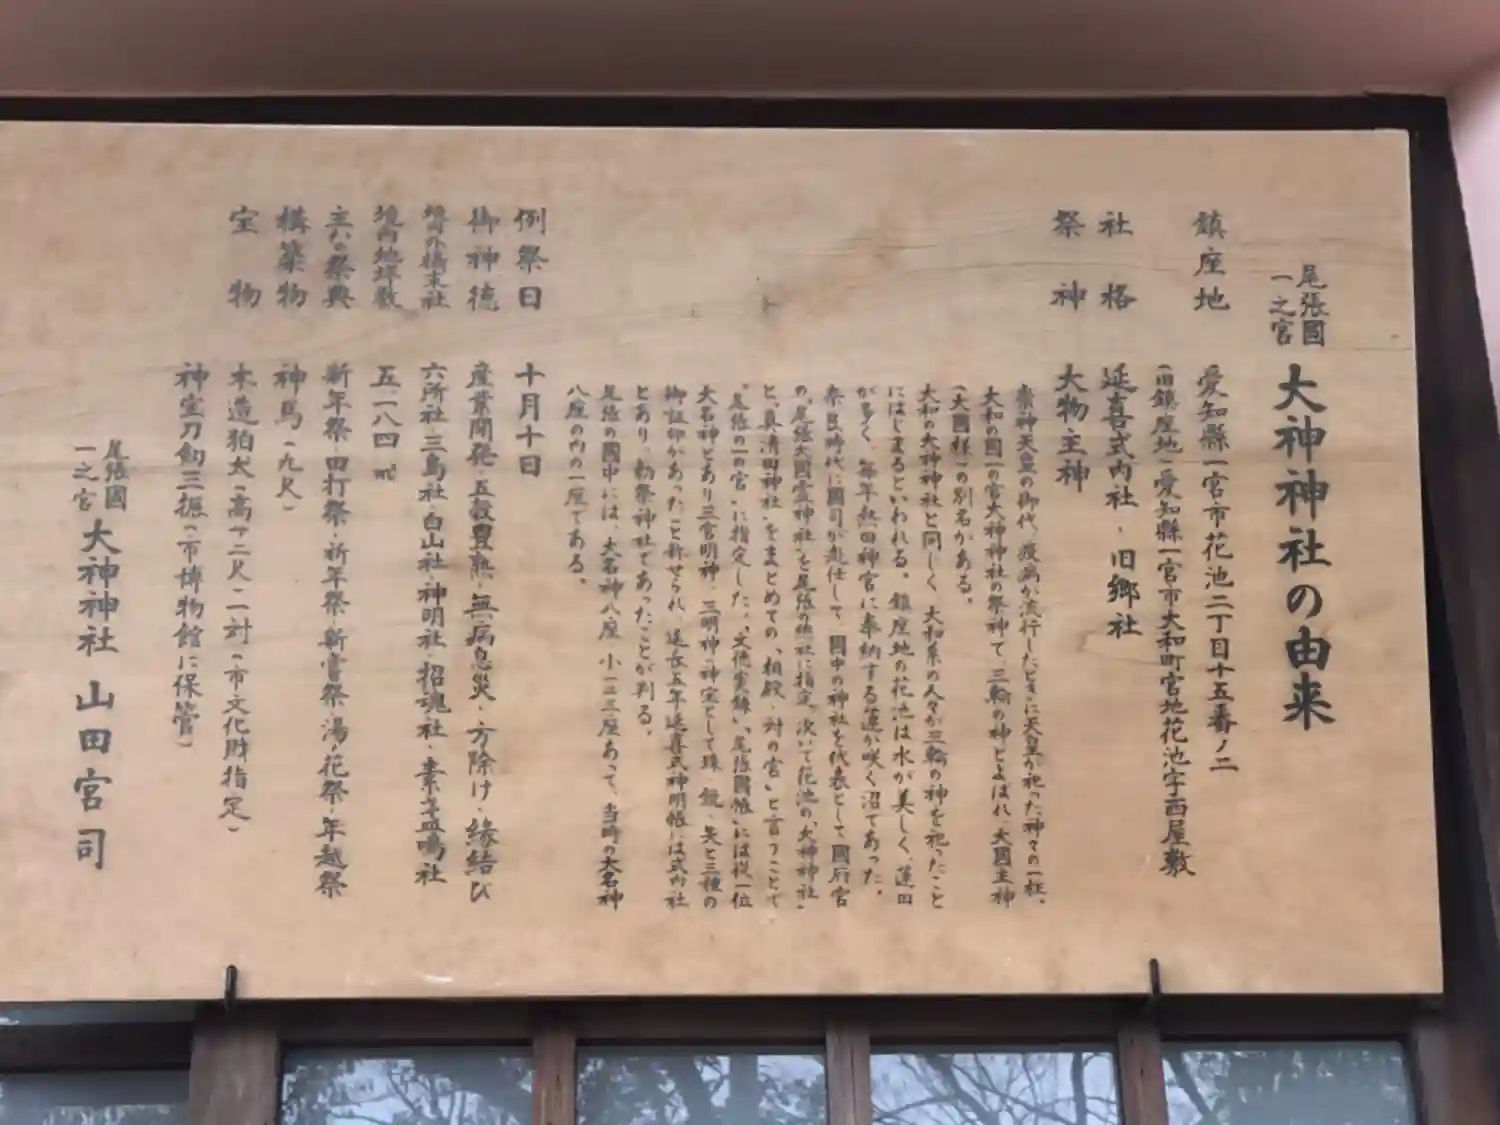 尾張國
一之宮 大神神社の由来
鎮座地 愛知縣一宮市花池二丁目十五番ノ二
(旧鎮座地)愛知縣一宮市大和町宮地花池字西屋敷
社格 延喜式内社・旧郷社
祭神 大物主神
崇神天皇の御代、疫病が流行したときに天皇が祀った神々の一柱。
大和の國一の宮大神神社の祭神で、三輪の神とよばれ、大國主神
(大國様)の別名がある。
大和の大神神社と同じく、大和系の人々が三輪の神を祀ったこと
にはじまるといわれる。鎮座地の花池は水が美しく、蓮田
が多く、毎年熱田神宮に奉納する蓮が咲く沼であった。
時代に國司が赴任して、國中の神社を代表として國府宮
の「尾張大國霊神社」を尾張の総社に指定、次いで花池の「大神神社」
と「真清田神社」をまとめての「相殿・対の宮」と言うことで、
「尾張の一の宮」に指定した。「文徳実録」「尾張國帳」には従一位
大名神とあり三宮明神・三明神・神宝として珠・鏡・矢と三種の
御証印があったと祈せられ、延長五年延喜式神明帳には式内社
とあり、勅祭神社であったことが判る。
尾張の國中には、大名神八座、小一三座あって、当時の大名神
八座の内の一座である。
例祭日 十月十日
御神徳 産業開発・五穀豊熟・無病息災・方除け・縁結び
境内外摂末社 六所社・三島社・白山社・神明社・招魂社・素盞嗚社
境内地坪数 五一八四㎡
主六の祭典 新年祭・田打祭・祈年祭・新嘗祭・湯ノ花祭・年越祭
構築物 神馬(九尺)
宝物 木造狛犬(高サ二尺)一対(市文化財指定)
神宝刀剱三振(市博物館に保管)
尾張國
一之宮 大神神社 山田宮司